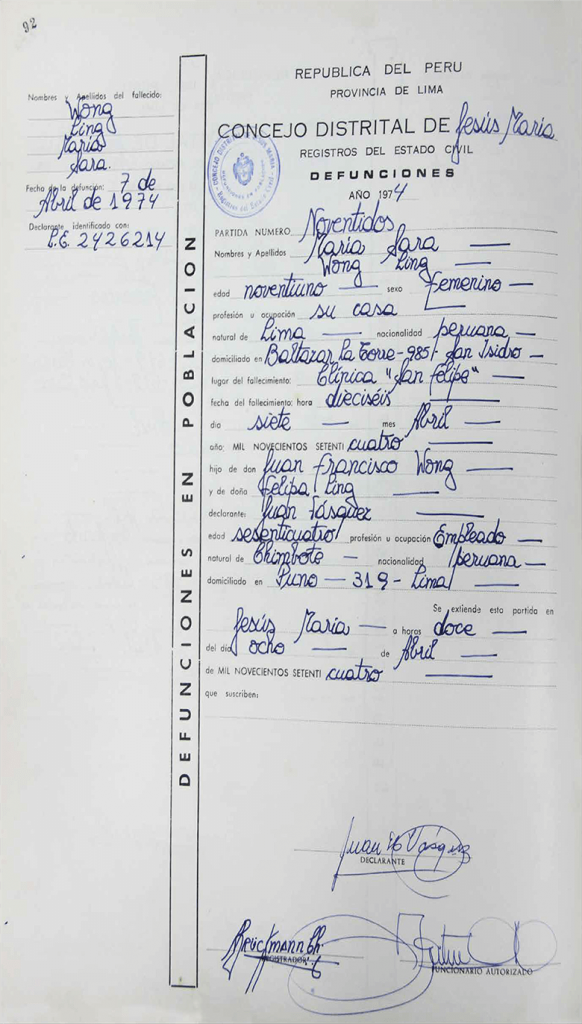 92
Nombres y Apellidos del fallecido:
Wong
Ling
Maria
Sara.
Fecha de la defunción: 7 de
Abril de 1974
Declarante identificado con:
L.E. 2426214
DEFUNCIONES EN POBLACION
REPUBLICA DEL PERU
PROVINCIA DE LIMA
CONCEJO DISTRITAL DE Jesús Maria
REGISTROS DEL ESTADO CIVIL
DEFUNCIONES
AÑO 1974
PARTIDA NUMERO Noventidos
Nombres y Apellidos Maria Sara —
Wong Ling —
edad noventiuno — sexo femenino —
profesión u ocupación su casa —
natural de Lima — nacionalidad peruana —
domiciliado en Baltazar la Torre - 985/ San Isidro —
lugar del fallecimiento: Clínica "San Felipe" —
fecha del fallecimiento: hora dieciséis —
día siete — mes Abril —
año: MIL NOVECIENTOS SETENTI cuatro —
hijo de don Juan Francisco Wong —
y de doña Felipa Ling —
declarante: Juan Vásquez —
edad sesenticuatro/ profesión u ocupación Empleado —
natural de Chimbote — nacionalidad peruana —
domiciliado en Puno — 319 - Lima/ —
Se extiende esta partida en
Jesús Maria — a horas doce —
del día ocho — de Abril —
de MIL NOVECIENTOS SETENTI cuatro —
que suscriben:
Juan Vásquez
DECLARANTE
Brückmann Ch.
REGISTRADOR
FUNCIONARIO AUTORIZADO